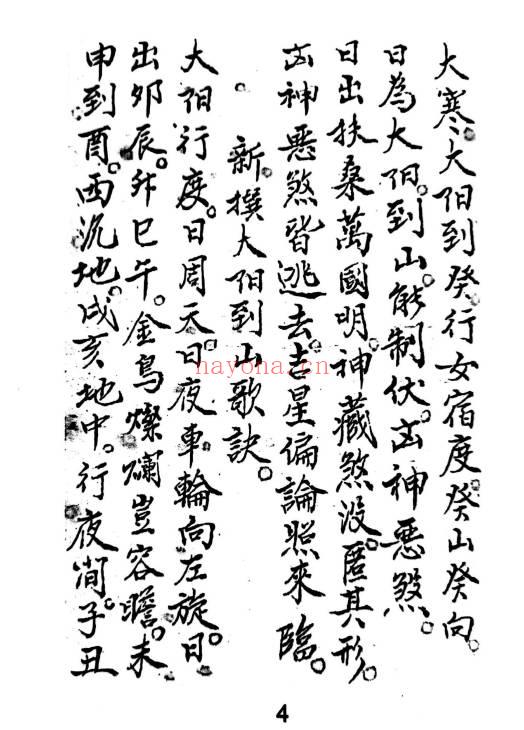 大寒大阳到癸行女宿度癸山癸向。
日為大阳。到山。能制伏。凶神惡煞。
日出扶桑萬國明。神藏煞没。匿其形。
凶神惡煞皆逃去。吉星偏論照來臨。
新撰大阳到山歌訣。
大阳行度。日周天。日夜車輪向左旋。日
出夘辰。升巳午。金烏燦爛豈容瞻。未
申到酉。西沉地。戌亥地中。行夜间。子丑
nayona.cn
4